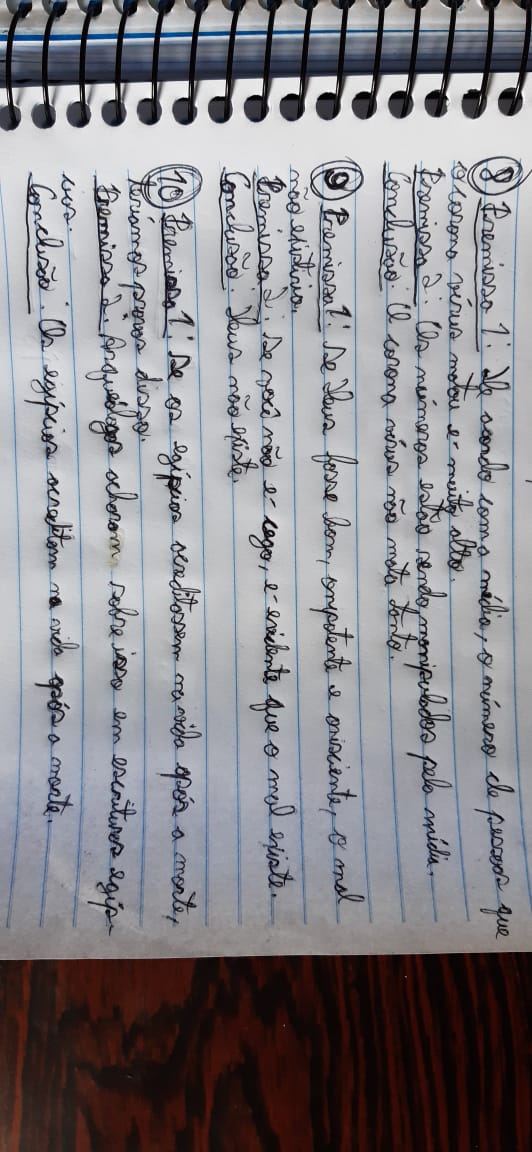 8 Premissa 1: De acordo com a média, o número de pessoas que
o corona vírus matou é muito alto.
Premissa 2: Os números estão sendo manipulados pela mídia.
Conclusão: O corona vírus não mata tanto.
9 Premissa 1: Se Deus fosse bom, onipotente e onisciente, o mal
não existiria.
Premissa 2: Se você não é cego, é evidente que o mal existe.
Conclusão: Deus não existe.
10 Premissa 1: Se os egípcios acreditassem na vida após a morte,
teríamos provas disso.
Premissa 2: Arqueólogos acharam sobre isso em escrituras egíp-
cias.
Conclusão: Os egípcios acreditam na vida após a morte.